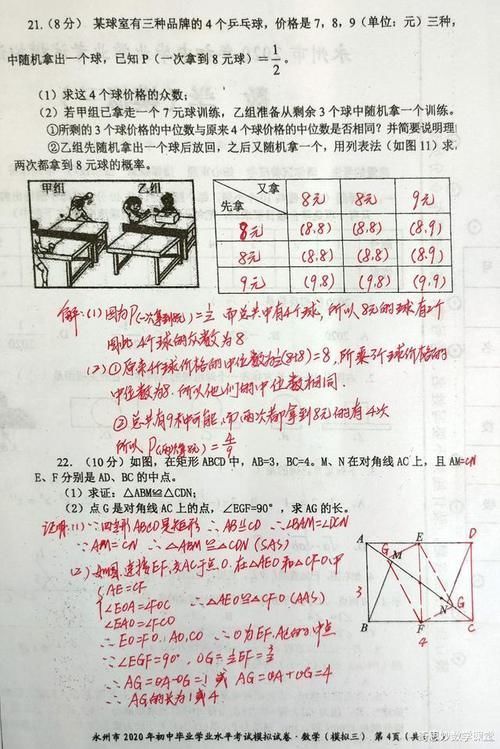 21.(8分) 某球室有三种品牌的4个乒乓球，价格是7，8，9（单位：元）三种，
中随机拿出一个球，已知P（一次拿到8元球）=1/2。
（1）求这4个球价格的众数；
（2）若甲组已拿走一个7元球训练，乙组准备从剩余3个球中随机拿一个训练。
①所剩的3个球价格的中位数与原来4个球价格的中位数是否相同？并简要说明理
②乙组先随机拿出一个球后放回，之后又随机拿一个，用列表法（如图11）求
两次都拿到8元球的概率。
甲组 乙组
又拿 先拿 8元 8元 9元
8元 (8.8) (8.8) (8.9)
8元 (8.8) (8.8) (8.9)
9元 (9.8) (9.8) (9.9)
解:(1)因为P(一次拿到8元)=1/2 而总共中有4个球,所以8元的球有2个
因此4个球的众数为8
(2)①原来4个球价格的中位数为1/2(8+8)=8,所来3个球价格的
中位数为8.所以他们的中位数相同.
②总共有9种可能,而两次都拿到8元的有4次
所以P(两次拿8元)=4/9
22.（10分）如图，在矩形ABCD中，AB=3，BC=4。M、N在对角线AC上，且AM=CN
E、F分别是AD、BC的中点。
（1）求证：△ABM≌△CDN；
（2）点G是对角线AC上的点，∠EGF=90°，求AG的长。
证明:(1)∵四边形ABCD是矩形 ∴AB∥CD ∴∠BAM=∠DCN
∵AM=CN ∴△ABM≌△CDN (SAS)
(2)如图.连接EF,交AC于点O.在△AEO和△CFO中
{AE=CF
∠EOA=∠FOC ∴△AEO≌△CFO(AAS)
∠EAO=∠FCO
∴EO=FO.AO,CO ∴O为EF.AC的中点
∵∠EGF=90°, OG=1/2EF=3/2
∴AG=OA-OG=1 或 AG=OA+OG=4
∴AG的长为1或4
A E D
G M
3
O
N G
B F C
4
永州市2020年初中毕业学业水平考试模拟试卷·数学（模拟三） 第4页（共